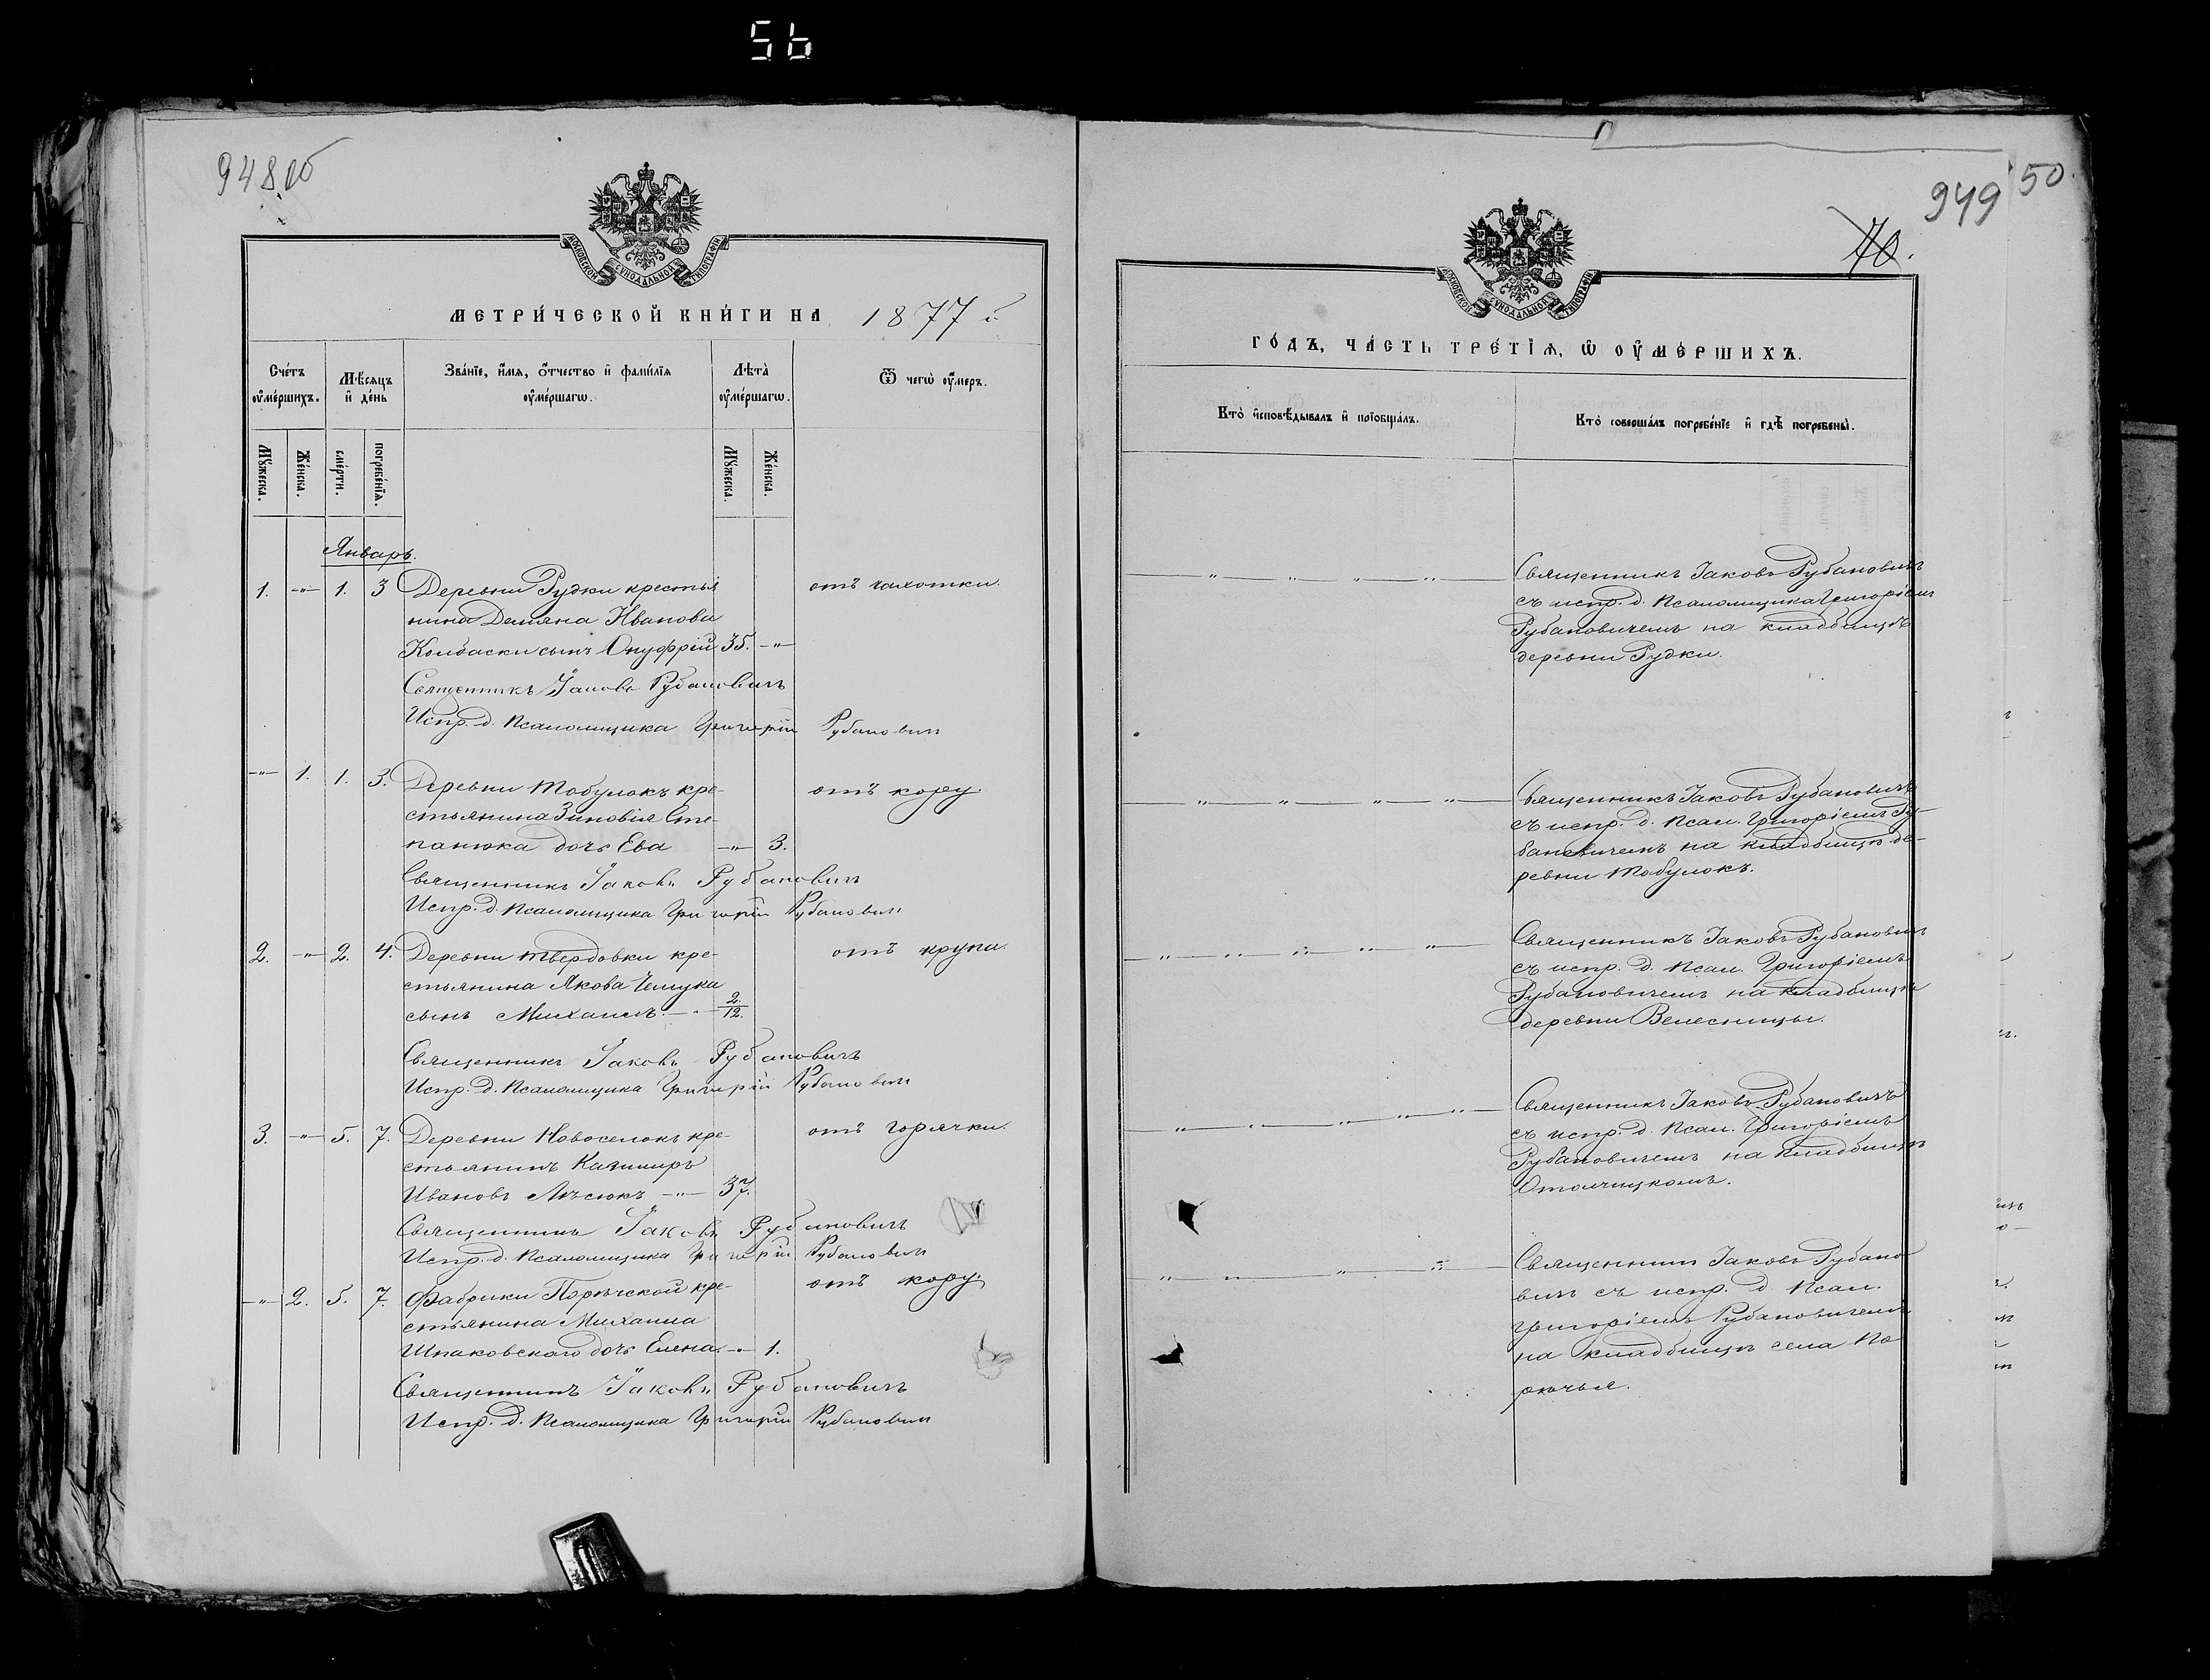 56
948об
МОСКОВСКОЙ СѴНОДАЛЬНОЙ ТИПОГРАФІИ
МЕТРИ́ЧЕСКОЙ КНИ́ГИ НА 1877 г
Сче́тъ оу҆ме́ршихъ.
Мѣ́сяцъ и҆ де́нь
Зва́нїе, и҆́мя, ѻ҆́тчество и҆ фами́лїя оу҆ме́ршагѡ.
Лѣ́та оу҆ме́ршагѡ.
Ѿ чегѡ̀ оу҆́меръ.
Мꙋ́жеска.
Же́нска.
сме́рти.
погребе́нїя.
Мꙋ́жеска.
Же́нска.
Январь.
1. -"- 1. 3 Деревни Рудки крестья отъ чахотки.
нина Демяна Иванова
Колбаски сынъ Онуфрій 35. -"-
Священникъ Іаковъ Рубановичъ
Испр. д. Псаломщика Григорій Рубановичъ
-"- 1. 1. 3. Деревни Тобулокъ кре- отъ кору.
стьянина Зиновія Сте-
панюка дочь Ева -"- 3.
Священникъ Іаковъ Рубановичъ
Испр. д. Псаломщика Григорій Рубановичъ
2. -"- 2. 4. Деревни Твердовки кре- отъ крупа.
стьянина Якова Чемука
сынъ Михаилъ. -"- 2/12.
Священникъ Іаковъ Рубановичъ
Испр. д. Псаломщика Григорій Рубановичъ
3. -"- 5. 7. Деревни Новоселокъ кре- отъ горячки.
стьянинъ Казимиръ
Ивановъ Лѣсюкъ -"- 37.
Священникъ Іаковъ Рубановичъ
Испр. д. Псаломщика Григорій Рубановичъ
-"- 2. 5. 7. Фабрики Порѣчской кре- отъ кору.
стьянина Михаила
Шпаковскаго дочь Елена. -"- 1.
Священникъ Іаковъ Рубановичъ
Испр. д. Псаломщика Григорій Рубановичъ
949
50.
70.
МОСКОВСКОЙ СѴНОДАЛЬНОЙ ТИПОГРАФІИ
ГО́ДЪ, ЧА́СТЬ ТРЕ́ТІѦ, Ѡ҆ ОУ҆МЕ́РШИХЪ.
Кто̀ и҆сповѣ́дывалъ и҆ прїобща́лъ.
Кто̀ соверша́лъ погребе́нїе и҆ гдѣ̀ погребены̀.
Священникъ Іаковъ Рубановичъ
съ испр. д. Псаломщика Григоріемъ
Рубановичемъ на кладбищѣ
деревни Рудки.
Священникъ Іаковъ Рубановичъ
съ испр. д. Псал. Григоріемъ Ру-
бановичемъ на кладбищѣ де-
ревни Тобулокъ.
Священникъ Іаковъ Рубановичъ
съ испр. д. Псал. Григоріемъ
Рубановичемъ на кладбищѣ
деревни Велесницы.
Священникъ Іаковъ Рубановичъ
съ испр. д. Псал. Григоріемъ
Рубановичемъ на кладбищѣ
Отолчицкомъ.
Священникъ Іаковъ Рубано
вичъ съ испр. д. Псал.
Григоріемъ Рубановичемъ
на кладбищѣ села По
рѣчья.